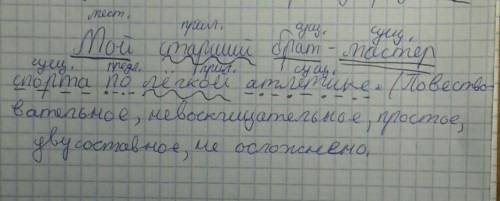 мест. прил. сущ. сущ.
Мой старший брат - мастер
сущ. предл. прил. сущ.
спорта по легкой атлетике. (Повество-
вательное, невосклицательное, простое,
двусоставное, не осложнено.